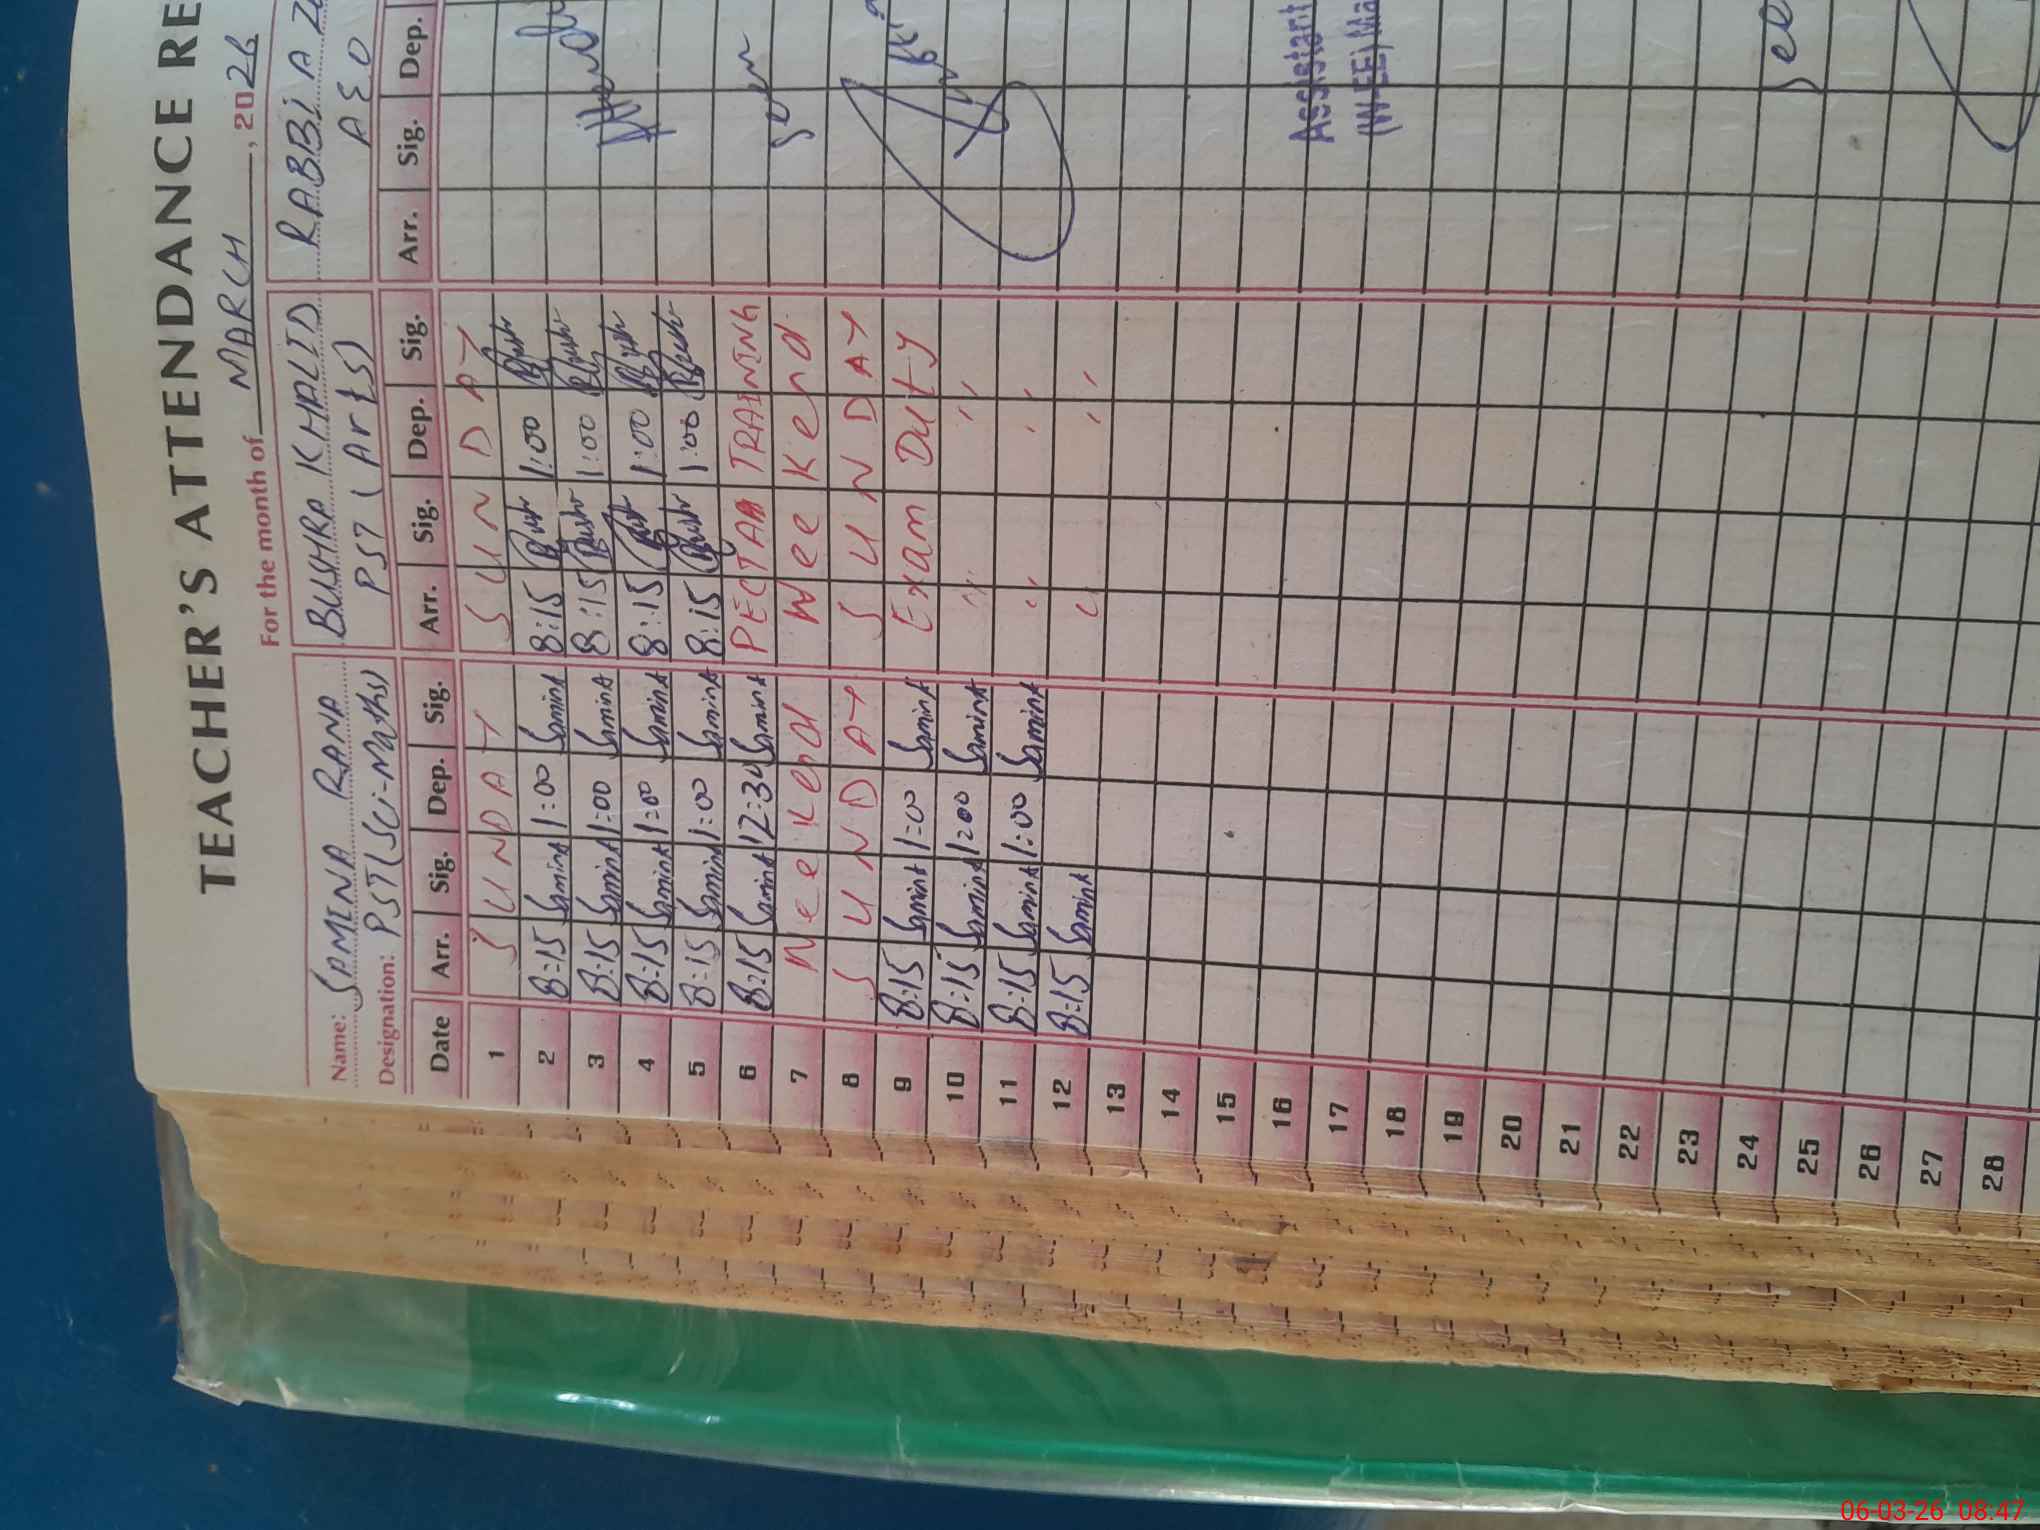 TEACHER'S ATTENDANCE RE
For the month of MARCH, 2026
Name: SAMINA RANA BUSHRA KHALID RABBIA
Designation: PST (Sci-Maths) PST (Arts) AEO
Date Arr. Sig. Dep. Sig. Arr. Sig. Dep. Sig. Arr. Sig. Dep.
1 SUNDAY SUNDAY
2 8:15 Samina 1:00 Samina 8:15 Bush 1:00 Bush
3 8:15 Samina 1:00 Samina 8:15 Bush 1:00 Bush
4 8:15 Samina 1:00 Samina 8:15 Bush 1:00 Bush
5 8:15 Samina 1:00 Samina 8:15 Bush 1:00 Bush
6 8:15 Samina 12:30 Samina PECTAA TRAINING
7 Weekend Weekend
8 SUNDAY SUNDAY
9 8:15 Samina 1:00 Samina Exam Duty
10 8:15 Samina 1:00 Samina " "
11 8:15 Samina 1:00 Samina " "
12 8:15 Samina " "
13
14
15
16 Assistant
17 (W-EE) Ma
18
19
20
21
22
23
24
25
26
27
28
06-03-26 08:47